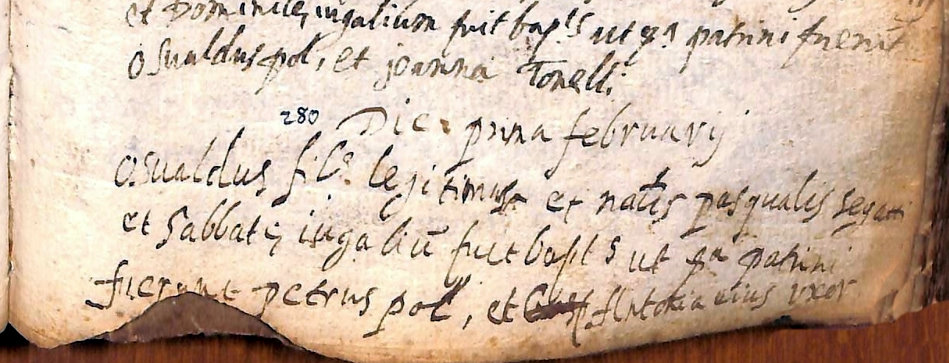 et Dominicę iugalium fuit bap.ts ut s.a patrini fuerũt
Osualdus pol, et joanna Tonelli
280 Die pͬma februarij
Osualdus fil.s legitimus et nat.s pasqualis segatti
et Sabbatę iugaliũ fuit bapt.s ut s.a patrini
fuerunt petrus pol, et Antonia eius uxor